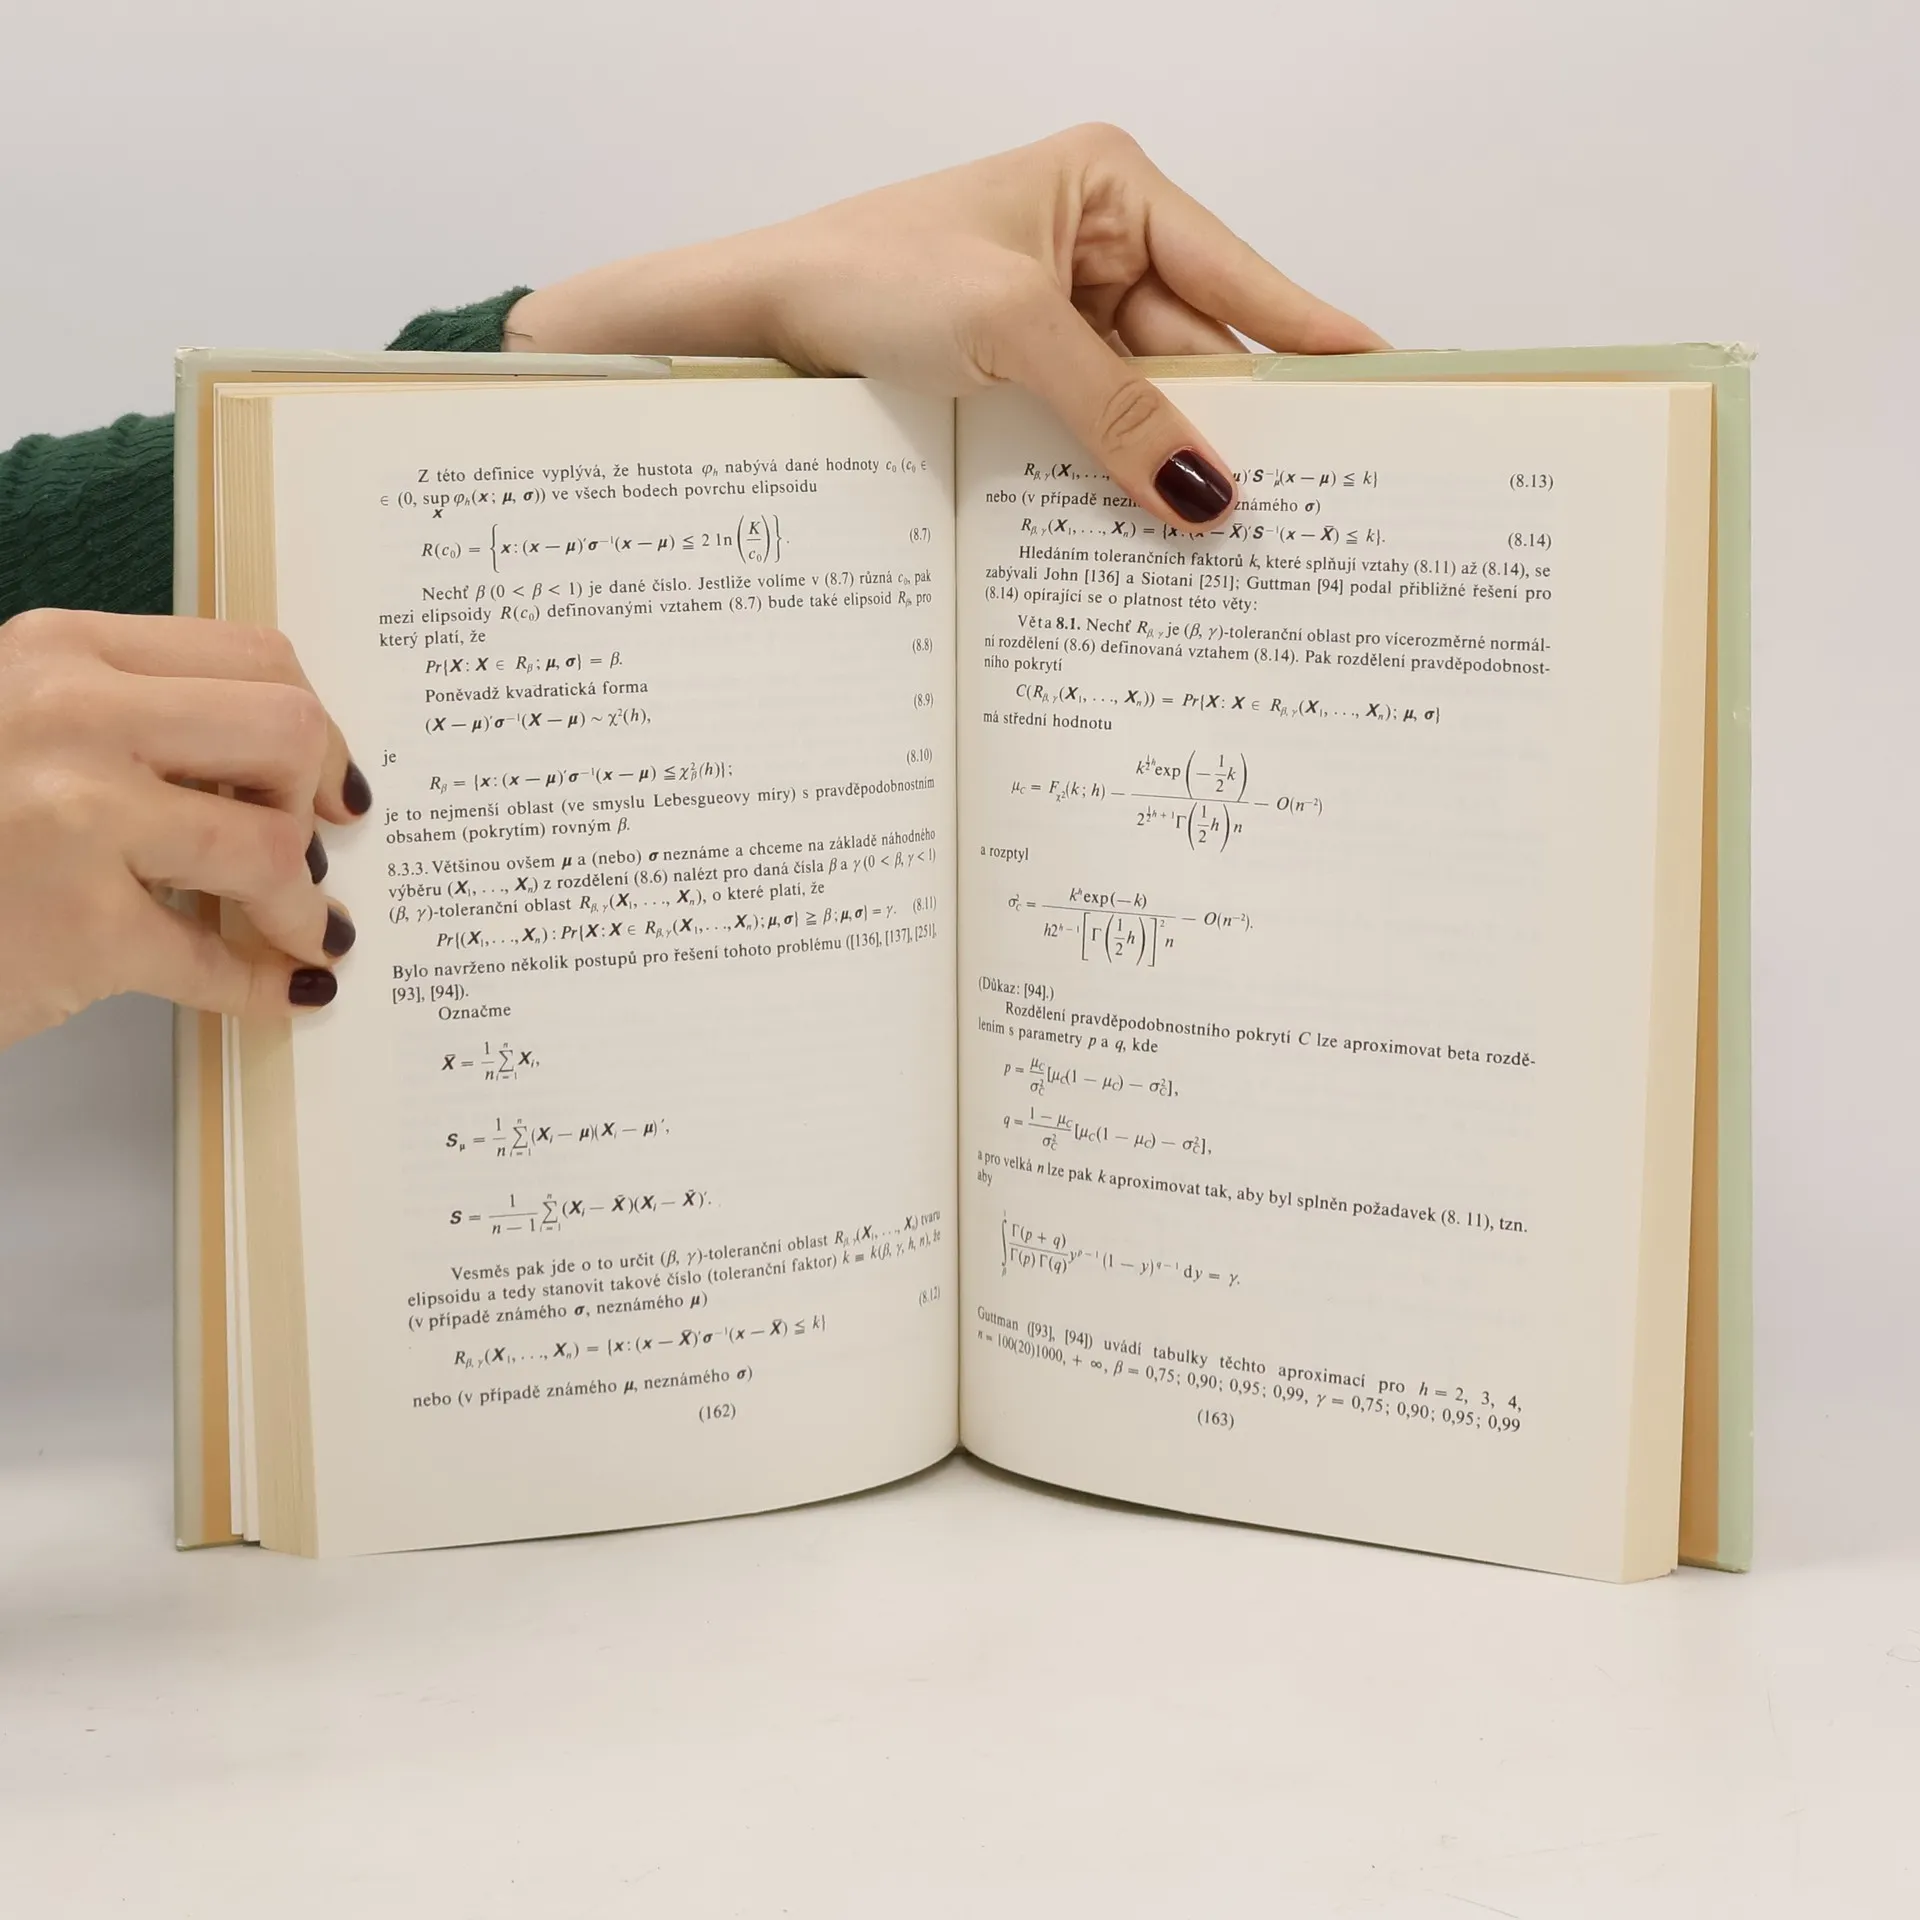 Z této definice vyplývá, že hustota φₕ nabývá dané hodnoty c₀ (c₀ ∈
∈ (0, sup φₕ(x; μ, σ)) ve všech bodech povrchu elipsoidu
x
R(c₀) = {x: (x — μ)′σ⁻¹(x — μ) ≦ 2 ln (K/c₀)}. (8.7)
Nechť β (0 < β < 1) je dané číslo. Jestliže volíme v (8.7) různá c₀, pak
mezi elipsoidy R(c₀) definovanými vztahem (8.7) bude také elipsoid R_β, pro
který platí, že
Pr{X: X ∈ R_β; μ, σ} = β. (8.8)
Poněvadž kvadratická forma
(X — μ)′σ⁻¹(X — μ) ~ χ²(h), (8.9)
je
R_β = {x: (x — μ)′σ⁻¹(x — μ) ≦ χ²_β(h)}; (8.10)
je to nejmenší oblast (ve smyslu Lebesgueovy míry) s pravděpodobnostním
obsahem (pokrytím) rovným β.
8.3.3. Většinou ovšem μ a (nebo) σ neznáme a chceme na základě náhodného
výběru (X₁, . . ., Xₙ) z rozdělení (8.6) nalézt pro daná čísla β a γ (0 < β, γ < 1)
(β, γ)-toleranční oblast R_β,γ(X₁, . . ., Xₙ), o které platí, že
Pr{(X₁,. . .,Xₙ) : Pr{X: X ∈ R_β,γ(X₁,. . .,Xₙ); μ, σ} ≧ β; μ, σ} = γ. (8.11)
Bylo navrženo několik postupů pro řešení tohoto problému ([136], [137], [251],
[93], [94]).
Označme
X̄ = 1/n ∑ⁿᵢ₌₁ Xᵢ,
S_μ = 1/n ∑ⁿᵢ₌₁ (Xᵢ — μ)(Xᵢ — μ)′,
S = 1/(n — 1) ∑ⁿᵢ₌₁ (Xᵢ — X̄)(Xᵢ — X̄)′.
Vesměs pak jde o to určit (β, γ)-toleranční oblast R_β,γ(X₁, . . ., Xₙ) tvaru
elipsoidu a tedy stanovit takové číslo (toleranční faktor) k = k(β, γ, h, n), že
(v případě známého σ, neznámého μ) (8.12)
R_β,γ(X₁, . . ., Xₙ) = {x: (x — X̄)′σ⁻¹(x — X̄) ≦ k}
nebo (v případě známého μ, neznámého σ)
(162)
R_β,γ(X₁, . . . μ)′S⁻¹_μ(x — μ) ≦ k} (8.13)
nebo (v případě známého σ)
R_β,γ(X₁, . . ., Xₙ) = {x: — X̄)′S⁻¹(x — X̄) ≦ k}. (8.14)
Hledáním tolerančních faktorů k, které splňují vztahy (8.11) až (8.14), se
zabývali John [136] a Siotani [251]; Guttman [94] podal přibližné řešení pro
(8.14) opírající se o platnost této věty:
Věta 8.1. Nechť R_β,γ je (β, γ)-toleranční oblast pro vícerozměrné normál-
ní rozdělení (8.6) definovaná vztahem (8.14). Pak rozdělení pravděpodobnost-
ního pokrytí
C(R_β,γ(X₁, . . ., Xₙ)) = Pr{X: X ∈ R_β,γ(X₁, . . ., Xₙ); μ, σ}
má střední hodnotu
μ_C = F_χ²(k; h) — k^(½h) exp (—½k) / (2^(½h + 1) Γ(½h) n) — O(n⁻²)
a rozptyl
σ²_C = kʰ exp(—k) / (h2ʰ⁻¹ [Γ(½h)]² n) — O(n⁻²).
(Důkaz: [94].)
Rozdělení pravděpodobnostního pokrytí C lze aproximovat beta rozdě-
lením s parametry p a q, kde
p = μ_C/σ²_C [μ_C(1 — μ_C) — σ²_C],
q = (1 — μ_C)/σ²_C [μ_C(1 — μ_C) — σ²_C],
a pro velká n lze pak k aproximovat tak, aby byl splněn požadavek (8. 11), tzn.
aby
∫¹_β Γ(p + q)/(Γ(p) Γ(q)) yᵖ⁻¹ (1 — y)^(q—1) dy = γ.
Guttman ([93], [94]) uvádí tabulky těchto aproximací pro h = 2, 3, 4,
n = 100(20)1000, + ∞, β = 0,75; 0,90; 0,95; 0,99, γ = 0,75; 0,90; 0,95; 0,99
(163)